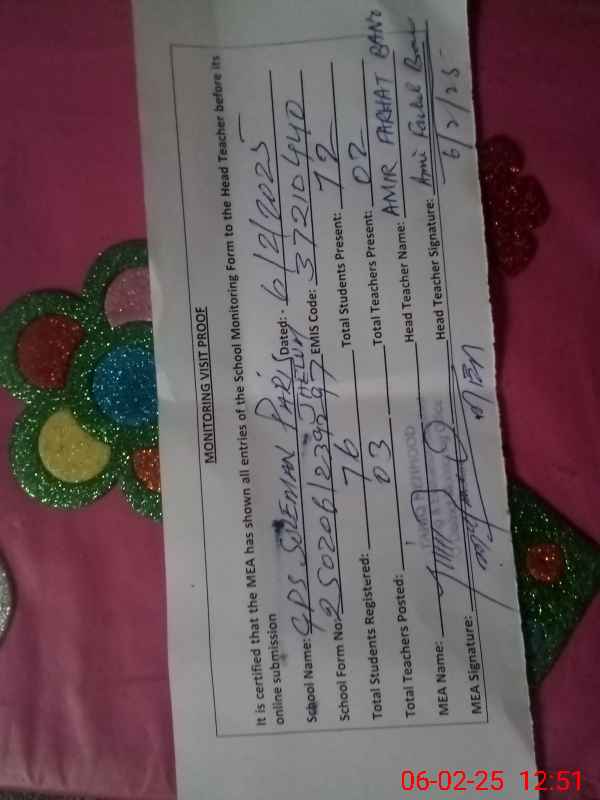 MONITORING VISIT PROOF
It is certified that the MEA has shown all entries of the School Monitoring Form to the Head Teacher before its
online submission
School Name: GPS SULEMAN PARIS Dated: 6/2/2025
School Form No: EMIS Code: 37210440
Total Students Registered: 76 Total Students Present: 72
Total Teachers Posted: 03 Total Teachers Present: 02
MEA Name: Head Teacher Name: AMIR FARHAT BANO
MEA Signature: MEA Head Teacher Signature: 6/2/25
06-02-25 12:51